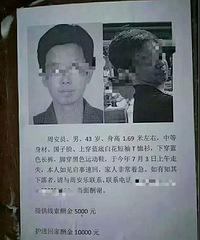 周安员、男、43 岁、身高 1.69 米左右，中等
身材，国子脸、上穿蓝底白花短袖 T 恤衫，下穿蓝
色长裤，脚穿黑色运动鞋，于今年 7 月 3 日上午走
失，本人如见启事速回，家人非常着急。如有知其
下落者，请与周安乐联系，联系电话
当面酬谢。
提供线索酬金 5000 元
护送回家酬金 10000 元